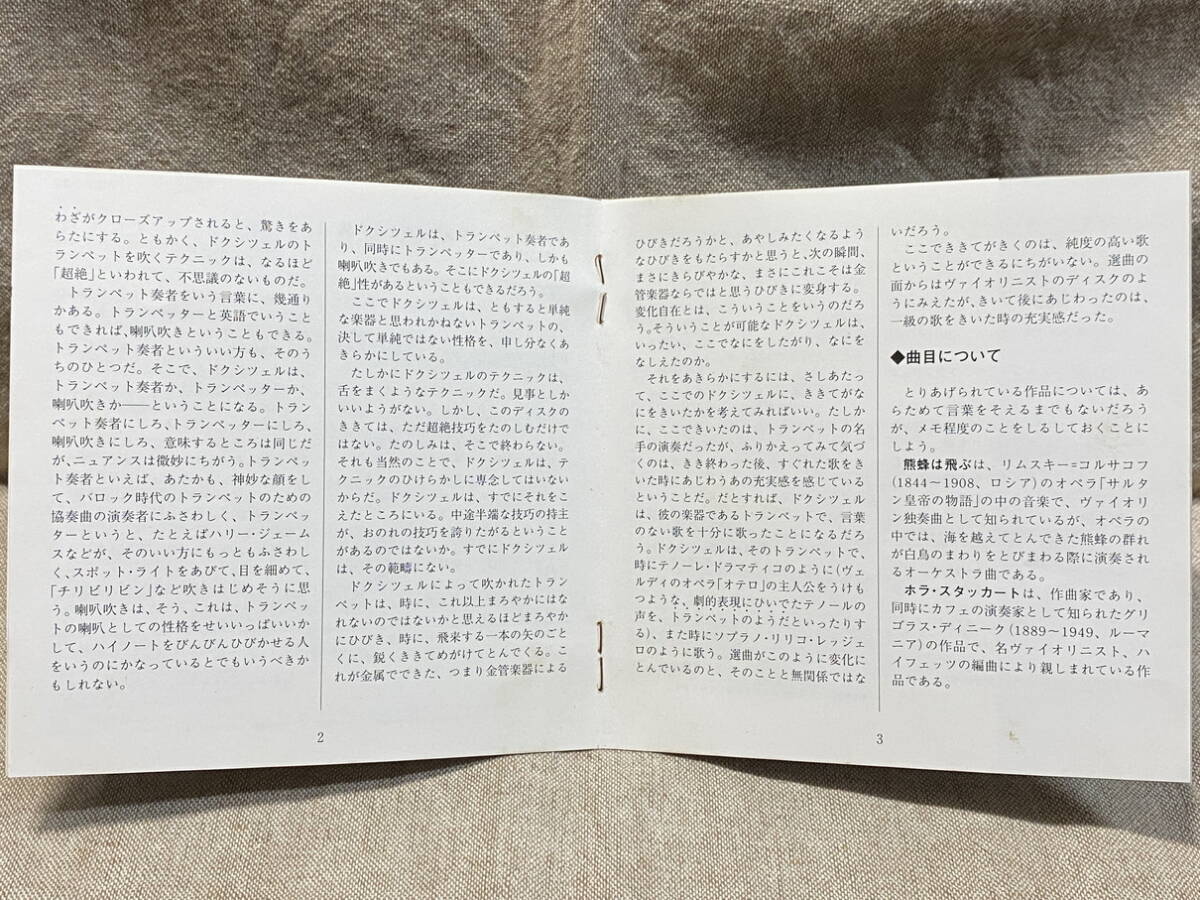 わざがクローズアップされると、驚きをあ
らたにする。ともかく、ドクシツェルのト
ランペットを吹くテクニックは、なるほど
「超絶」といわれて、不思議のないものだ。
トランペット奏者をいう言葉に、幾通り
かある。トランペッターと英語でいうこと
もできれば、喇叭吹きということもできる。
トランペット奏者といういい方も、そのう
ちのひとつだ。そこで、ドクシツェルは、
トランペット奏者か、トランペッターか、
喇叭吹きか——ということになる。トラン
ペット奏者にしろ、トランペッターにしろ、
喇叭吹きにしろ、意味するところは同じだ
が、ニュアンスは微妙にちがう。トランペッ
ト奏者といえば、あたかも、神妙な顔をし
て、バロック時代のトランペットのための
協奏曲の演奏者にふさわしく、トランペッ
ターというと、たとえばハリー・ジェーム
スなどが、そのいい方にもっともふさわし
く、スポット・ライトをあびて、目を細めて、
「チリビリビン」など吹きはじめそうに思
う。喇叭吹きは、そう、これは、トランペッ
トの喇叭としての性格をせいいっぱいいか
して、ハイノートをぴんぴんひびかせる人
をいうのにかなっているとでもいうべきか
もしれない。
ドクシツェルは、トランペット奏者であ
り、同時にトランペッターであり、しかも
喇叭吹きでもある。そこにドクシツェルの「超
絶」性があるということもできるだろう。
ここでドクシツェルは、ともすると単純
な楽器と思われかねないトランペットの、
決して単純ではない性格を、申し分なくあ
きらかにしている。
たしかにドクシツェルのテクニックは、
舌をまくようなテクニックだ。見事としか
いいようがない。しかし、このディスクの
ききては、ただ超絶技巧をたのしむだけで
はない。たのしみは、そこで終わらない。
それも当然のことで、ドクシツェルは、テ
クニックのひけらかしに専念してはいない
からだ。ドクシツェルは、すでにそれをこ
えたところにいる。中途半端な技巧の持主
が、おのれの技巧を誇りたがるということ
があるのではないか。すでにドクシツェル
は、その範疇にない。
ドクシツェルによって吹かれたトラン
ペットは、時に、これ以上まろやかにはな
れないのではないかと思えるほどまろやか
にひびき、時に、飛来する一本の矢のごと
くに、鋭くききてめがけてとんでくる。こ
れが金属でできた、つまり金管楽器による
2
ひびきだろうかと、あやしみたくなるよう
なひびきをもたらすかと思うと、次の瞬間、
まさにきらびやかな、まさにこれこそは金
管楽器ならではと思うひびきに変身する。
変化自在とは、こういうことをいうのだろ
う。そういうことが可能なドクシツェルは、
いったい、ここでなにをしたがり、なにを
なしえたのか。
それをあきらかにするには、さしあたっ
て、ここでのドクシツェルに、ききてがな
にをきいたかを考えてみればいい。たしか
に、ここできいたのは、トランペットの名
手の演奏だったが、ふりかえってみて気づ
くのは、きき終わった後、すぐれた歌をき
いた時にあじわうあの充実感を感じている
ということだ。だとすれば、ドクシツェル
は、彼の楽器であるトランペットで、言葉
のない歌を十分に歌ったことになるだろ
う。ドクシツェルは、そのトランペットで、
時にテノーレ・ドラマティコのように（ヴェ
ルディのオペラ「オテロ」の主人公をうけも
つような、劇的表現にひいでたテノールの
声を、トランペットのようだといったりす
る）、また時にソプラノ・リリコ・レッジェ
ロのように歌う。選曲がこのように変化に
とんでいるのと、そのことと無関係ではな
いだろう。
ここでききてがきくのは、純度の高い歌
ということができるにちがいない。選曲の
面からはヴァイオリニストのディスクのよ
うにみえたが、きいて後にあじわったのは、
一級の歌をきいた時の充実感だった。
◆曲目について
とりあげられている作品については、あ
らためて言葉をそえるまでもないだろう
が、メモ程度のことをしるしておくことに
しよう。
熊蜂は飛ぶは、リムスキー＝コルサコフ
（1844〜1908、ロシア）のオペラ「サルタ
ン皇帝の物語」の中の音楽で、ヴァイオリ
ン独奏曲として知られているが、オペラの
中では、海を越えてとんできた熊蜂の群れ
が白鳥のまわりをとびまわる際に演奏され
るオーケストラ曲である。
ホラ・スタッカートは、作曲家であり、
同時にカフェの演奏家として知られたグリ
ゴラス・ディニーク（1889〜1949、ルーマ
ニア）の作品で、名ヴァイオリニスト、ハ
イフェッツの編曲により親しまれている作
品である。
3